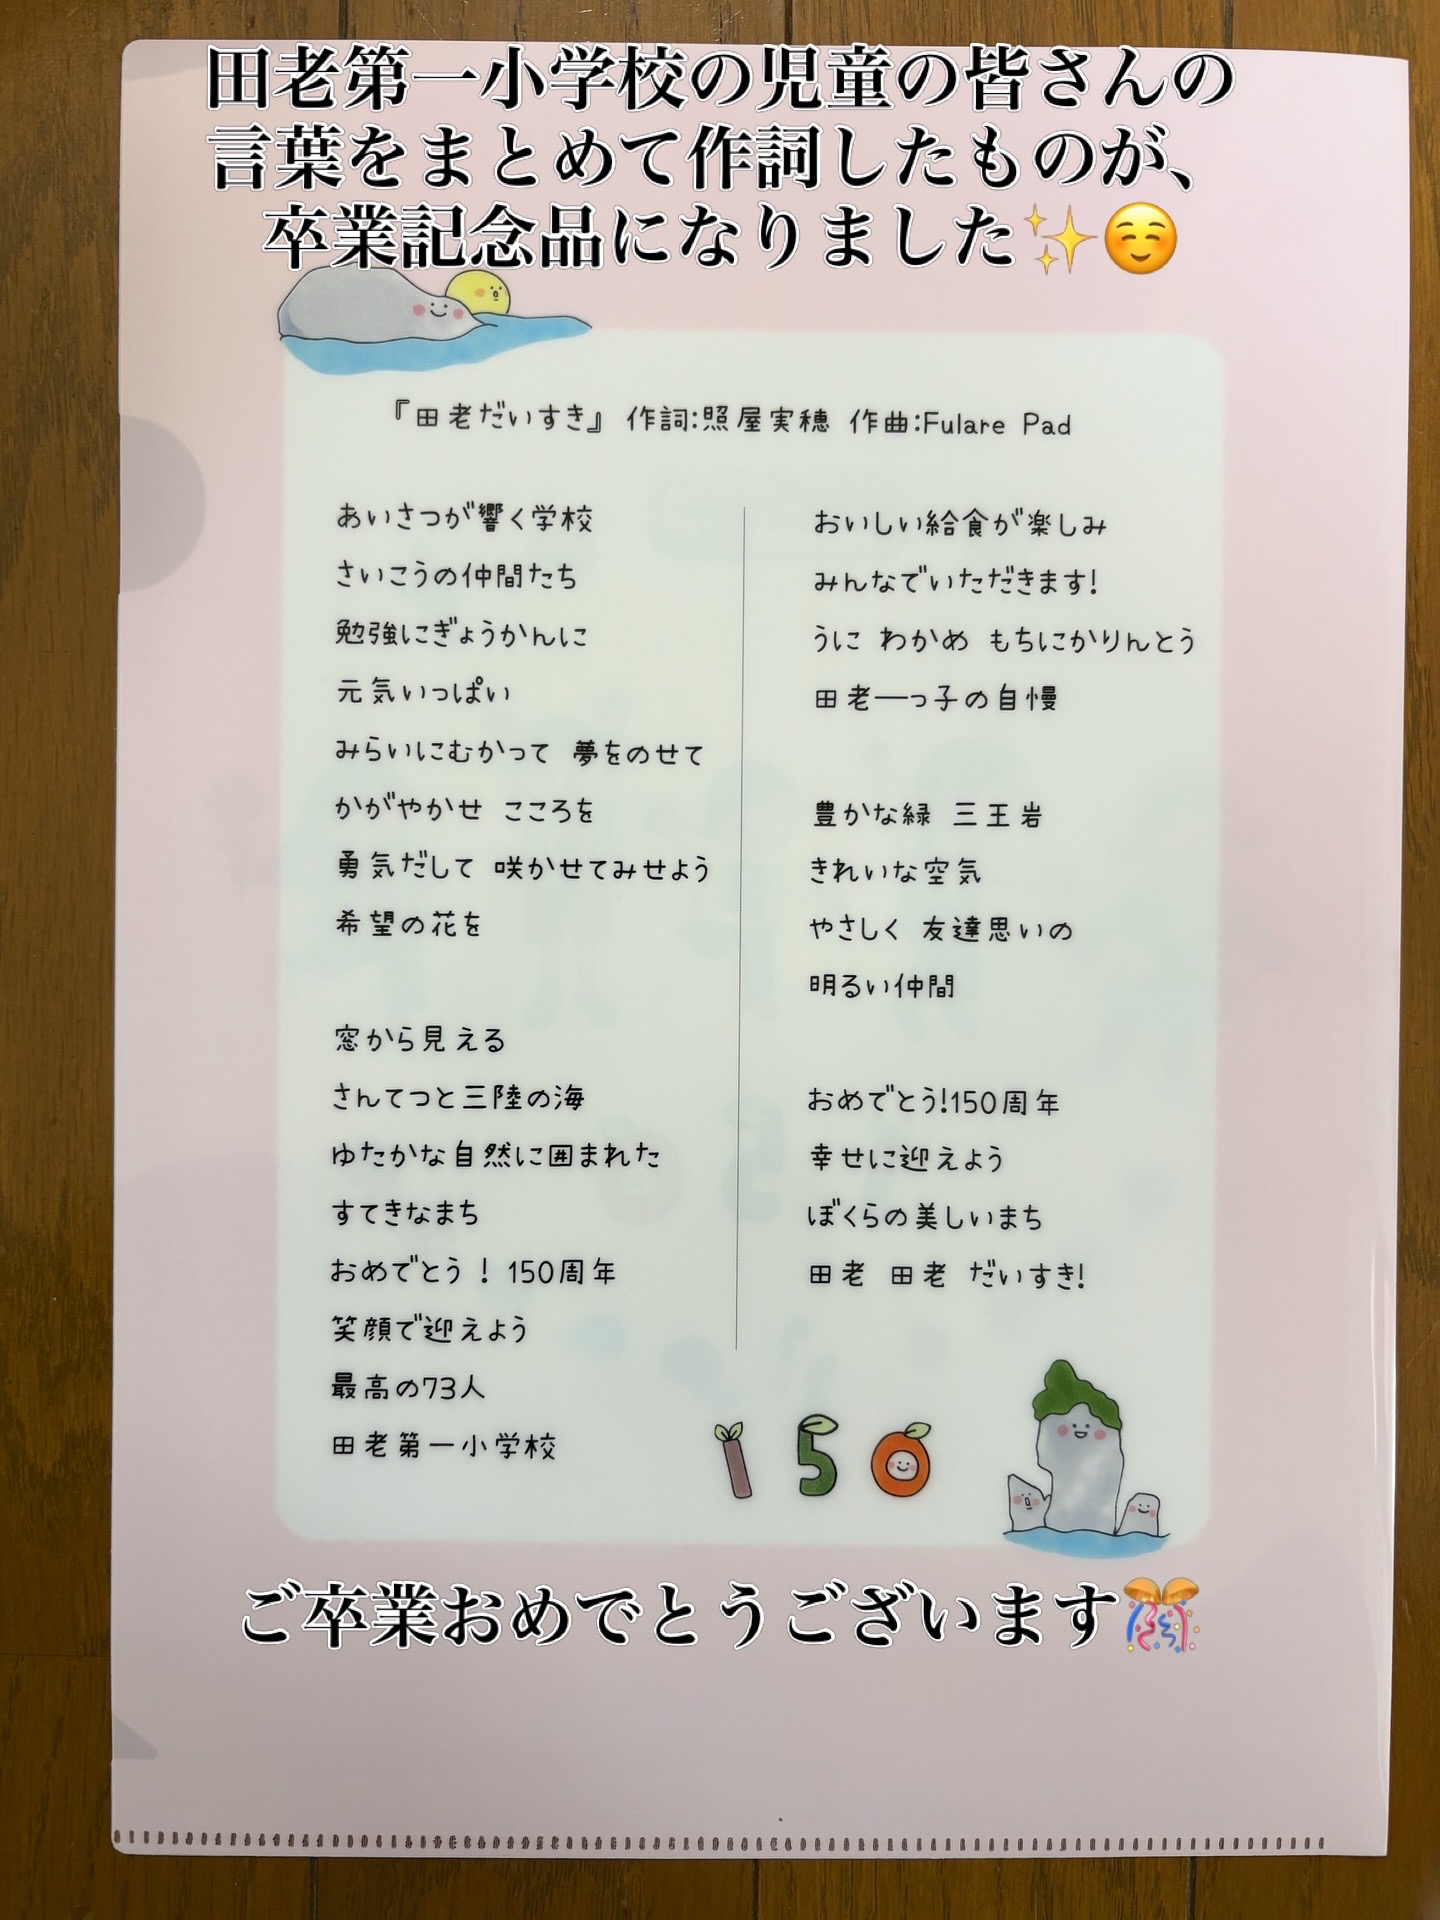 田老第一小学校の児童の皆さんの
言葉をまとめて作詞したものが、
卒業記念品になりました✨☺️
『田老だいすき』 作詞:照屋実穂 作曲:Fulare Pad
あいさつが響く学校
さいこうの仲間たち
勉強にぎょうかんに
元気いっぱい
みらいにむかって 夢をのせて
かがやかせ こころを
勇気だして 咲かせてみせよう
希望の花を
窓から見える
さんてつと三陸の海
ゆたかな自然に囲まれた
すてきなまち
おめでとう! 150周年
笑顔で迎えよう
最高の73人
田老第一小学校
おいしい給食が楽しみ
みんなでいただきます!
うに わかめ もちにかりんとう
田老一っ子の自慢
豊かな緑 三王岩
きれいな空気
やさしく 友達思いの
明るい仲間
おめでとう!150周年
幸せに迎えよう
ぼくらの美しいまち
田老 田老 だいすき!
150
ご卒業おめでとうございます🎊